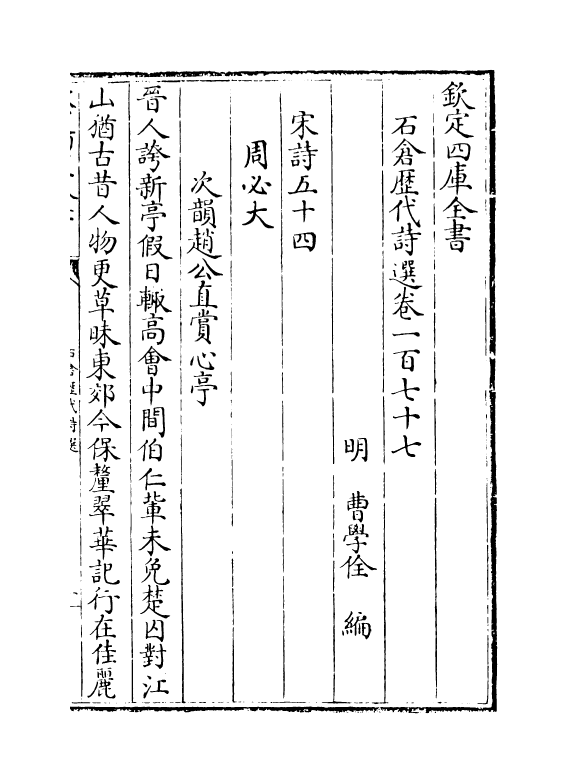 欽定四庫全書
石倉歴代詩選卷一百七十七
明 曹學佺 編
宋詩五十四
周必大
次韻趙公直賞心亭
晉人誇新亭假日輙髙會中間伯仁軰未免楚囚對江
山猶古昔人物更草昧東郊今保釐翠華記行在佳麗
石倉歴代詩選